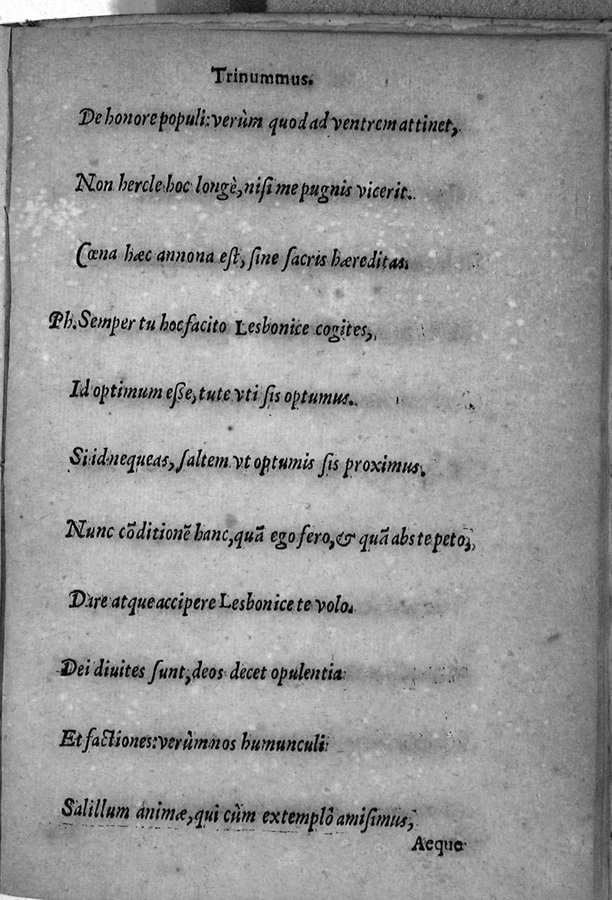 Trinummus.
De honore populi: verùm quod ad ventrem attinet,
Non hercle hoc longè, niſi me pugnis vicerit.
Cœna hæc annona eſt, ſine ſacris hæreditas.
Ph. Semper tu hoc facito Lesbonice cogites,
Id optimum eſſe, tute vti ſis optumus.
Si id nequeas, ſaltem vt optumis ſis proximus.
Nunc cõditionẽ hanc, quã ego fero, & quã abs te peto,
Dare atque accipere Lesbonice te volo.
Dei diuites ſunt, deos decet opulentia
Et factiones: verùm nos humunculi
Salillum animæ, qui cùm extemplò amiſimus,
Aeque